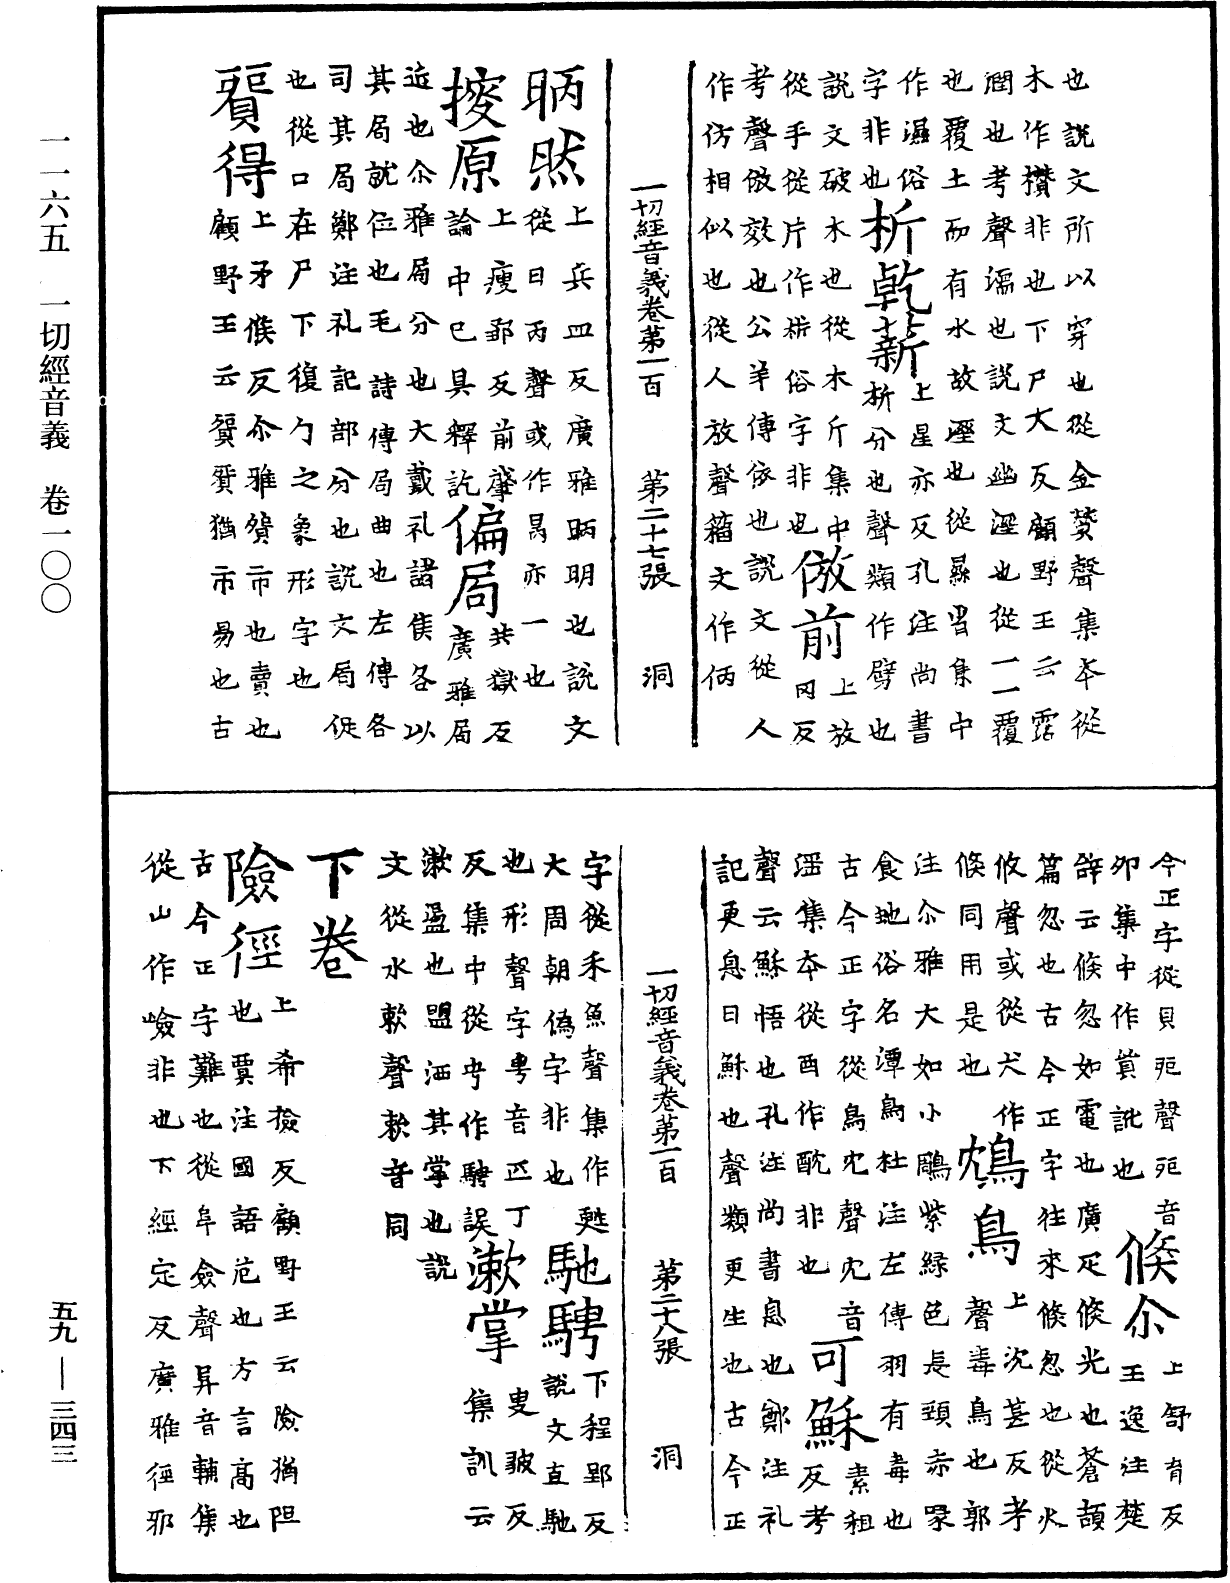 一一六五　一切經音義　卷一〇〇
五九—三四三
也說文所以穿也從金贊聲集本從
木作欑非也下尸大反顧野王云霑
潤也考聲濡也說文幽溼也從一一覆
也覆土而有水故溼也從㬎省集中
作濕俗字非也析乾薪上星亦反孔注尚書
析分也聲類作劈也
說文破木也從木斤集中
從手從片作㭊俗字非也倣前上放冈反
考聲倣效也公羊傳依也說文從人
作仿相似也從人放聲籀文作俩
一切經音義卷第一百　第二十七張　洞
昞然上兵皿反廣雅昞明也說文
從日丙聲或作昺亦一也
㨄原上瘦鄒反前肇
論中已具釋訖偏局共獄反
廣雅局
近也尒雅局分也大戴礼諸侯各以
其局就位也毛詩傳局曲也左傳各
司其局鄭注礼記部分也說文局促
也從口在尸下復勹之象形字也
貿得上矛候反尒雅貿市也賣也
顧野王云貿貨猶市易也古
今正字從貝戼聲戼音
夘集中作貿訛也倏尒上舒育反
王逸注楚
辭云倏忽如電也廣疋倏光也蒼頡
篇忽也古今正字往來倏忽也從火
攸聲或從犬作
倏同用是也鴆鳥上沈甚反考
聲毒鳥也郭
注尒雅大如小鵰紫緑色長頸赤喙
食虵俗名潭鳥杜注左傳羽有毒也
古今正字從鳥冘聲冘音
淫集本從酉作酖非也可穌素租
反考
聲云穌悟也孔注尚書息也鄭注礼
記更息曰穌也聲類更生也古今正
一切經音義卷第一百　第二十八張　洞
字從禾魚聲集作甦
大周朝偽字非也馳騁下程郢反
說文直馳
也形聲字甹音匹丁
反集中從甹作騁誤漱掌叟皷反
集訓云
漱盪也盥洒其掌也說
文從水欶聲欶音同
下卷
險徑上希撿反顧野王云險猶阻
也賈注國語危也方言高也
古今正字難也從阜僉聲舁音輔集
從山作嶮非也下經定反廣雅徑邪